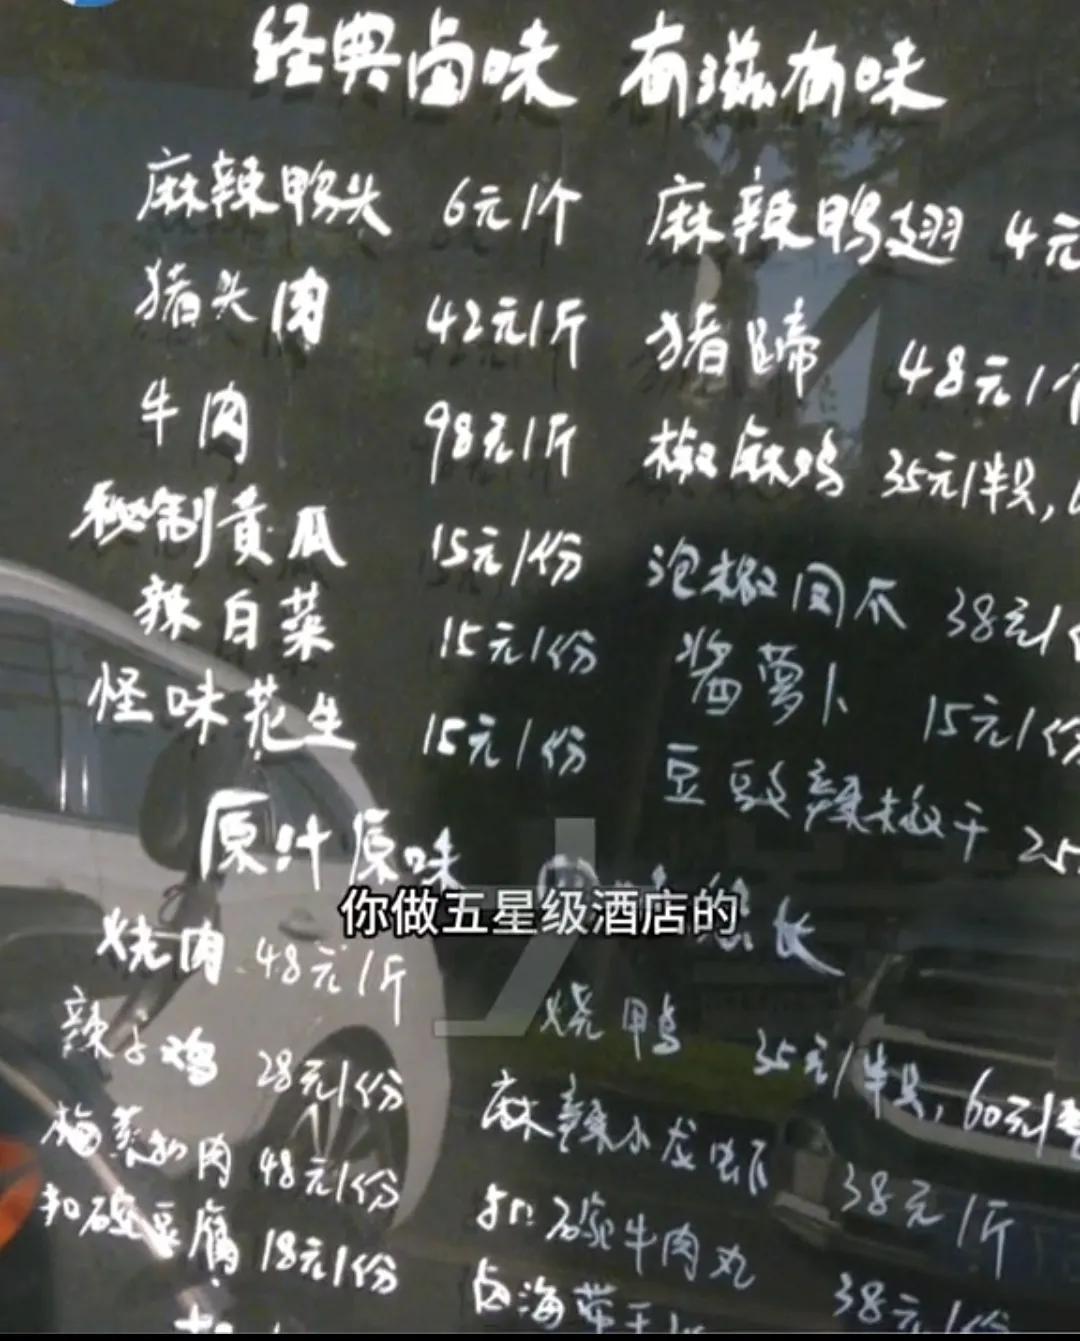 经典卤味 有滋有味
麻辣鸭头 6元/个 麻辣鸭翅 4元
猪头肉 42元/斤 猪蹄 48元/个
牛肉 98元/斤 椒麻鸡 35元/半只,
秘制黄瓜 15元/份 泡椒凤爪 38元/
辣白菜 15元/份 酱萝卜 15元/份
怪味花生 15元/份 豆豉辣椒干 25
原汁原味
你做五星级酒店的
长
烧肉 48元/斤 烧鸭 35元/半只, 60元/整
辣子鸡 28元/份 麻辣小龙虾 38元/斤
梅菜扣肉 48元/份 扣碗牛肉丸 38元/份
扣碗豆腐 18元/份 卤海带